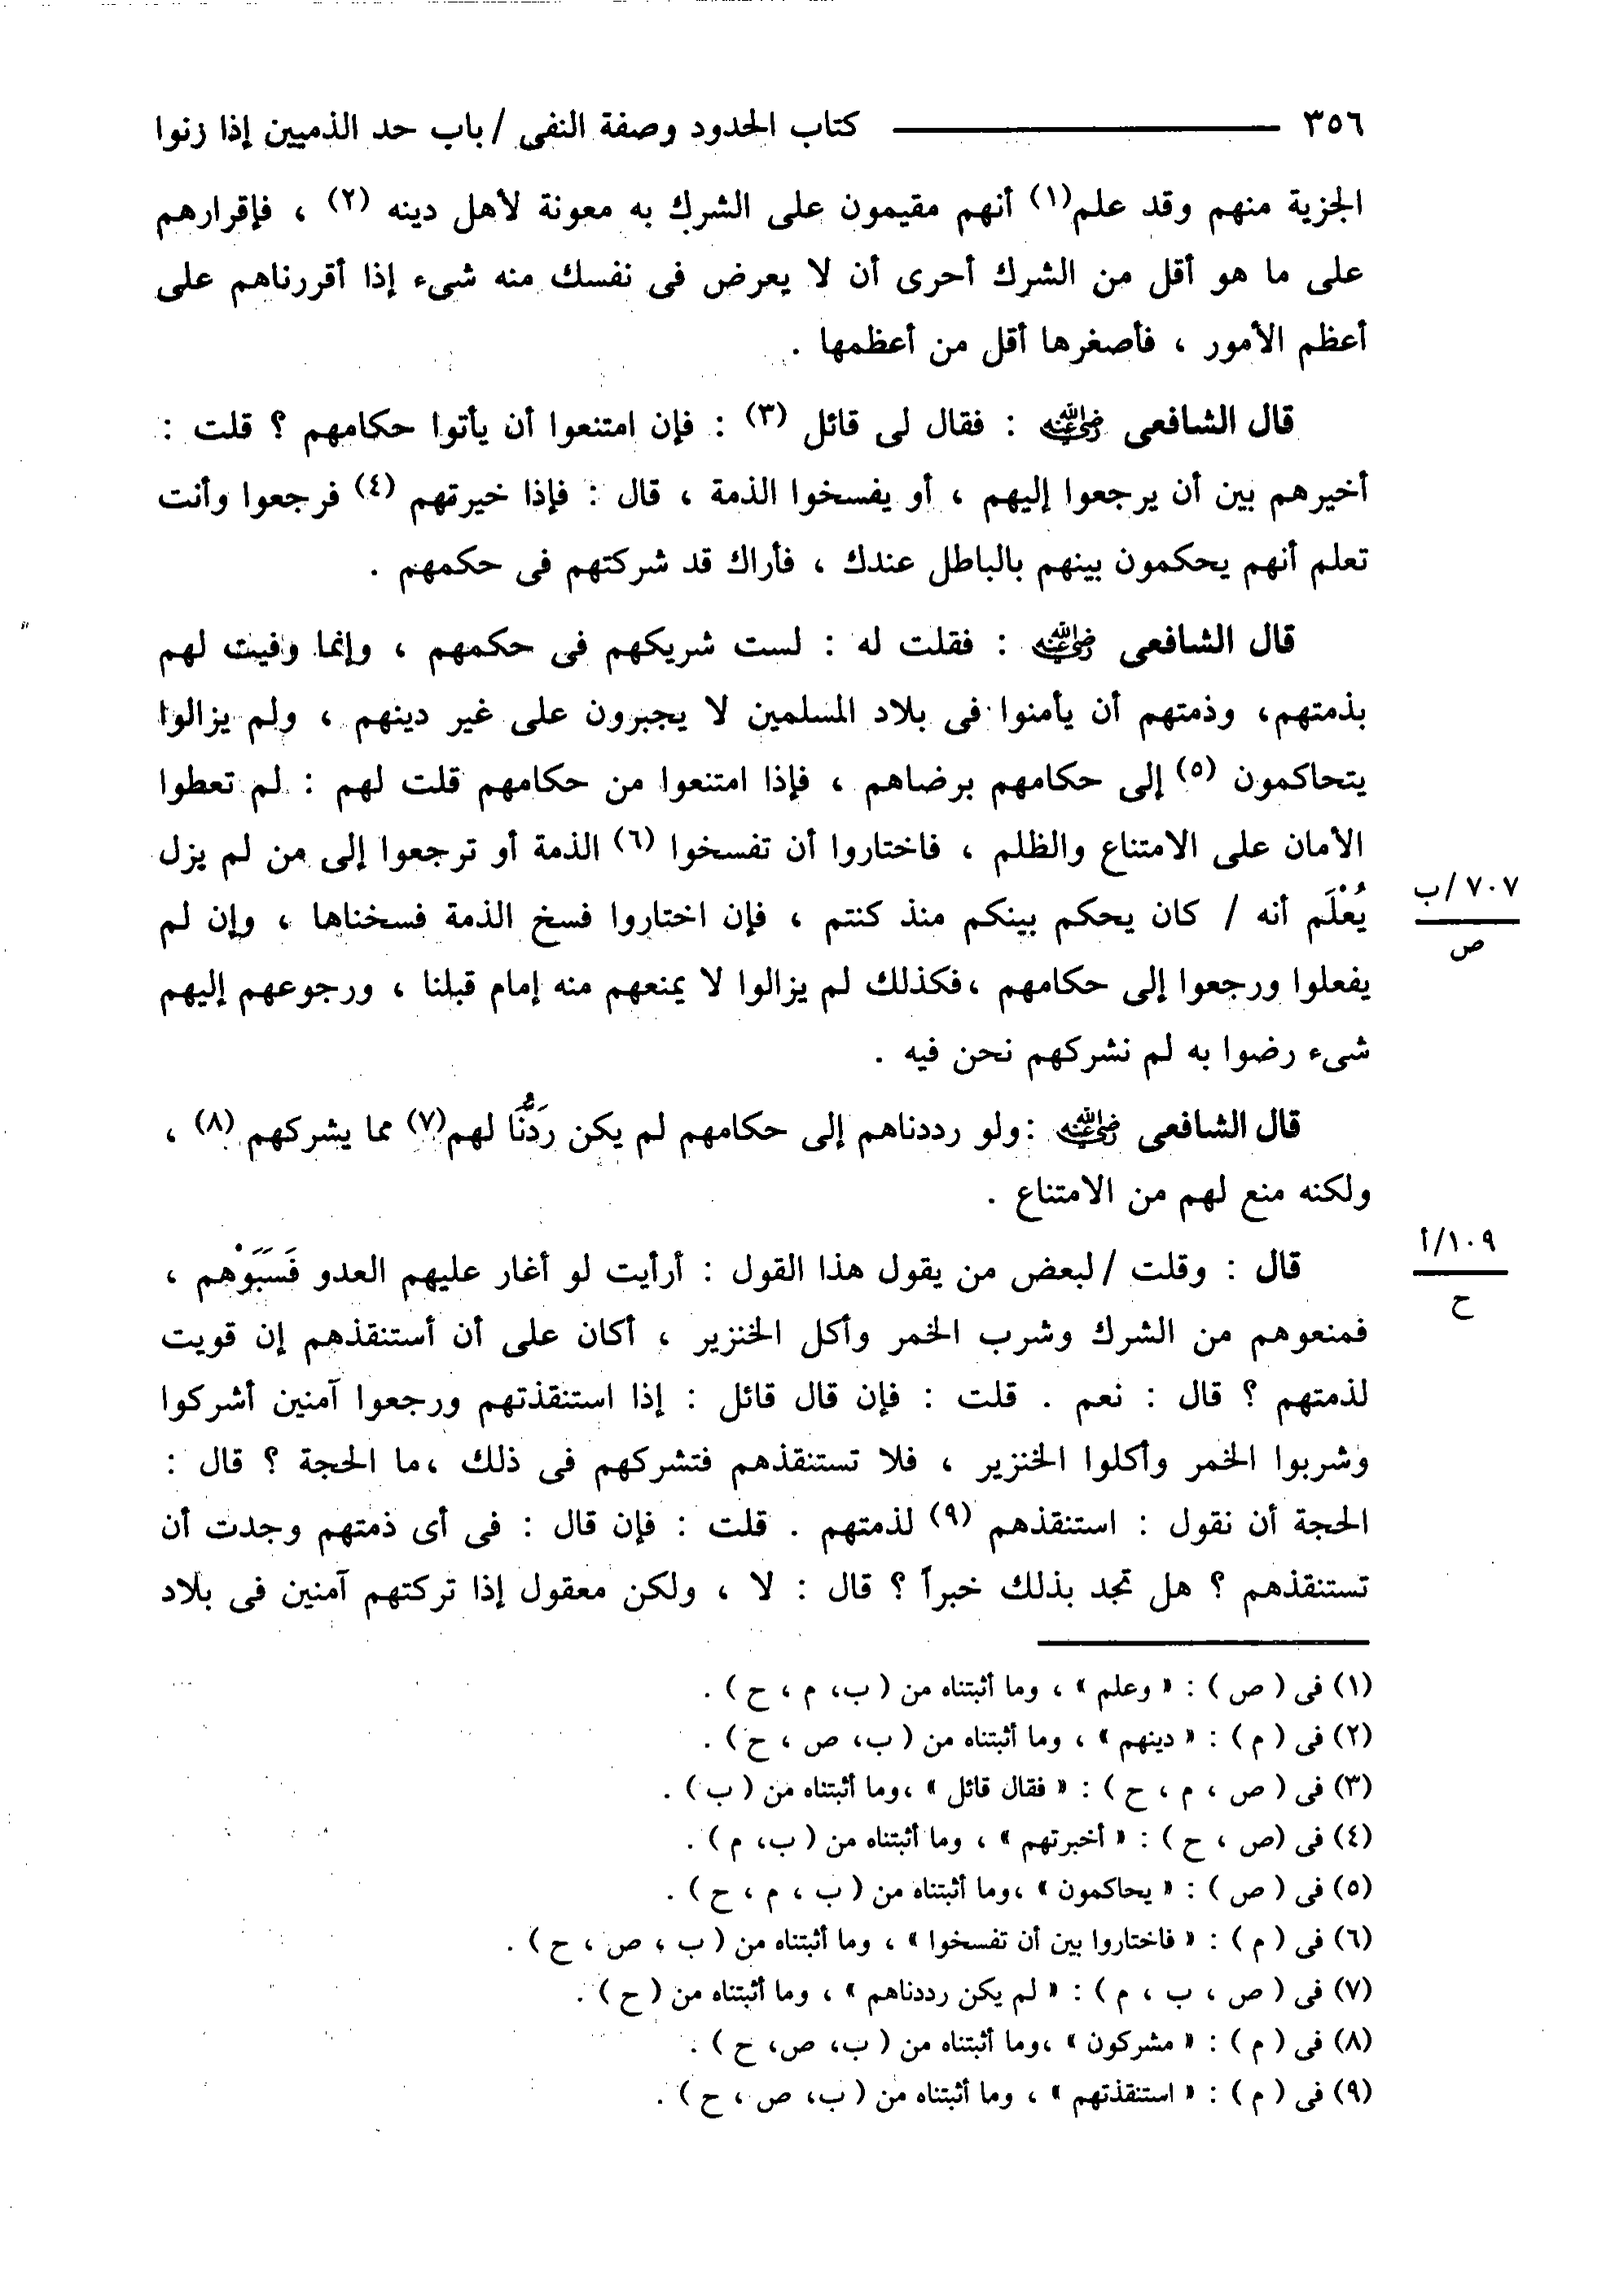 ٣٥٦ ــــــــــــــــــــ كتاب الحدود وصفة النفى / باب حد الذميين إذا زنوا
الجزية منهم وقد علم(١) أنهم مقيمون على الشرك به معونة لأهل دينه (٢) ، فإقرارهم
على ما هو أقل من الشرك أحرى أن لا يعرض فى نفسك منه شىء إذا أقررناهم على
أعظم الأمور ، فأصغرها أقل من أعظمها .
قال الشافعى رضي الله عنه : فقال لى قائل (٣) : فإن امتنعوا أن يأتوا حكامهم ؟ قلت :
أخيرهم بين أن يرجعوا إليهم ، أو يفسخوا الذمة ، قال : فإذا خيرتهم (٤) فرجعوا وأنت
تعلم أنهم يحكمون بينهم بالباطل عندك ، فأراك قد شركتهم فى حكمهم .
قال الشافعى رضي الله عنه : فقلت له : لست شريكهم فى حكمهم ، وإنما وفيت لهم
بذمتهم، وذمتهم أن يأمنوا فى بلاد المسلمين لا يجبرون على غير دينهم ، ولم يزالوا
يتحاكمون (٥) إلى حكامهم برضاهم ، فإذا امتنعوا من حكامهم قلت لهم : لم تعطوا
الأمان على الامتناع والظلم ، فاختاروا أن تفسخوا (٦) الذمة أو ترجعوا إلى من لم يزل
٧٠٧/ب
يُعْلَم أنه / كان يحكم بينكم منذ كنتم ، فإن اختاروا فسخ الذمة فسخناها ، وإن لم
ص
يفعلوا ورجعوا إلى حكامهم ،فكذلك لم يزالوا لا يمنعهم منه إمام قبلنا ، ورجوعهم إليهم
شىء رضوا به لم نشركهم نحن فيه .
قال الشافعى رضي الله عنه :ولو رددناهم إلى حكامهم لم يكن رَدُّنَا لهم(٧) مما يشركهم (٨) ،
ولكنه منع لهم من الامتناع .
١٠٩/أ
قال : وقلت / لبعض من يقول هذا القول : أرأيت لو أغار عليهم العدو فَسَبَوْهم ،
ح
فمنعوهم من الشرك وشرب الخمر وأكل الخنزير ، أكان على أن أستنقذهم إن قويت
لذمتهم ؟ قال : نعم . قلت : فإن قال قائل : إذا استنقذتهم ورجعوا آمنين أشركوا
وشربوا الخمر وأكلوا الخنزير ، فلا تستنقذهم فتشركهم فى ذلك ،ما الحجة ؟ قال :
الحجة أن نقول : استنقذهم (٩) لذمتهم . قلت : فإن قال : فى أى ذمتهم وجدت أن
تستنقذهم ؟ هل تجد بذلك خبراً ؟ قال : لا ، ولكن معقول إذا تركتهم آمنين فى بلاد
(١) فى ( ص ) : « وعلم » ، وما أثبتناه من ( ب، م ، ح ) .
(٢) فى ( م ) : « دينهم » ، وما أثبتناه من ( ب، ص ، ح ) .
(٣) فى ( ص ، م ، ح ) : « فقال قائل » ،وما أثبتناه من ( ب ) .
(٤) فى (ص ، ح ) : « أخبرتهم » ، وما أثبتناه من ( ب، م ) .
(٥) فى ( ص ) : « يحاكمون » ،وما أثبتناه من ( ب ، م ، ح ) .
(٦) فى ( م ) : « فاختاروا بين أن تفسخوا » ، وما أثبتناه من ( ب ، ص ، ح ) .
(٧) فى ( ص ، ب ، م ) : « لم يكن رددناهم » ، وما أثبتناه من ( ح ) .
(٨) فى ( م ) : « مشركون » ،وما أثبتناه من ( ب، ص، ح ) .
(٩) فى ( م ) : « استنقذتهم » ، وما أثبتناه من ( ب، ص ، ح ) .